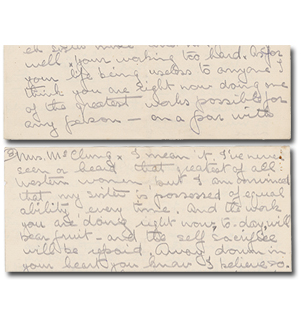 well, your working too hard. As for
your life being useless to anyone I
think you are right now doing one
of the greatest works possible for
any person - on a par with
Mrs. McClung. I mean it. I've never
seen or heard that greatest of all
Western women, but I am convinced
that my sister is possessed of equal
ability every time. And the work
you are doing right now, to-day, will
bear fruit - and the self sacrifice
will be repaid. Away down in
your heart you know I believe so.